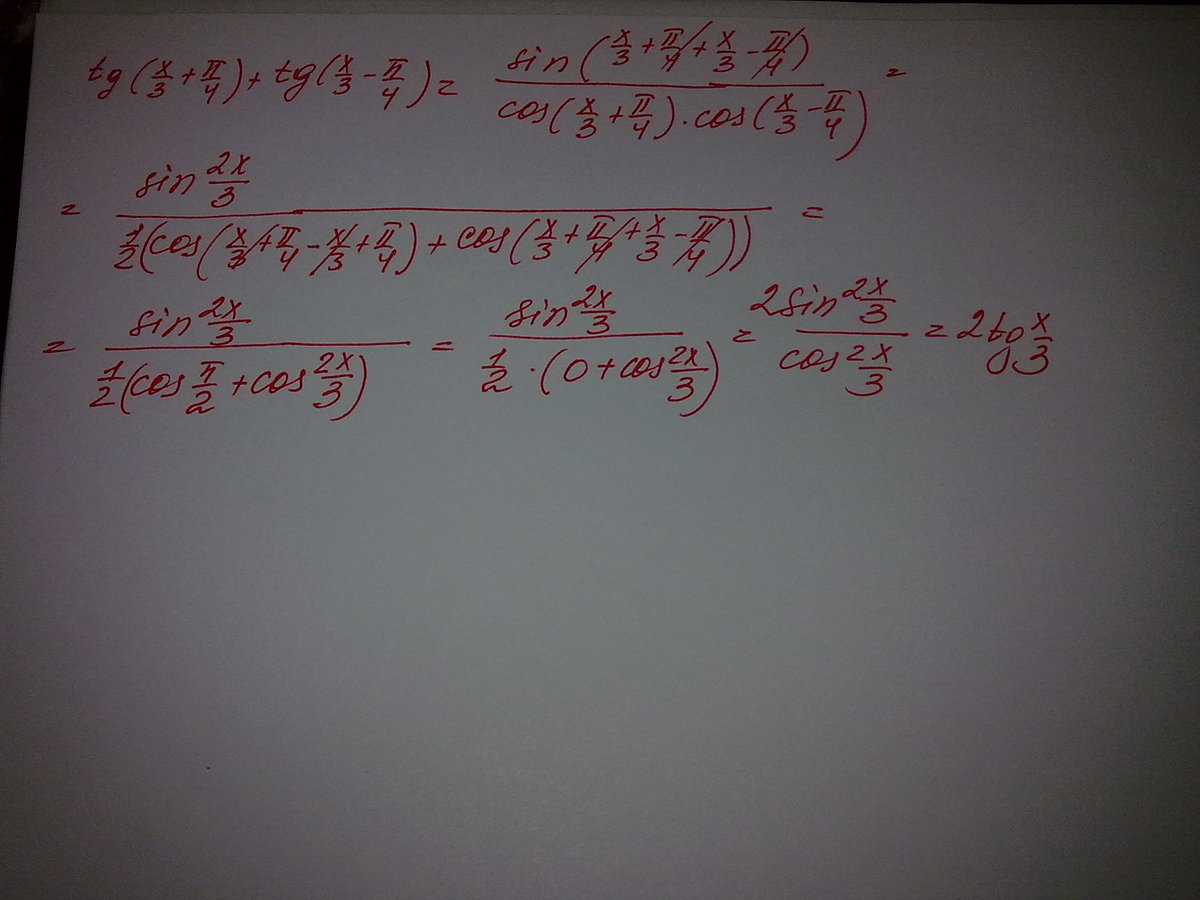 tg(x/3 + π/4) + tg(x/3 - π/4) = sin(x/3 + π/4 + x/3 - π/4) / cos(x/3 + π/4) · cos(x/3 - π/4) =
= sin 2x/3 / 1/2(cos(x/3 + π/4 - x/3 + π/4) + cos(x/3 + π/4 + x/3 - π/4)) =
= sin 2x/3 / 1/2(cos π/2 + cos 2x/3) = sin 2x/3 / 1/2 · (0 + cos 2x/3) = 2sin 2x/3 / cos 2x/3 = 2tg x/3